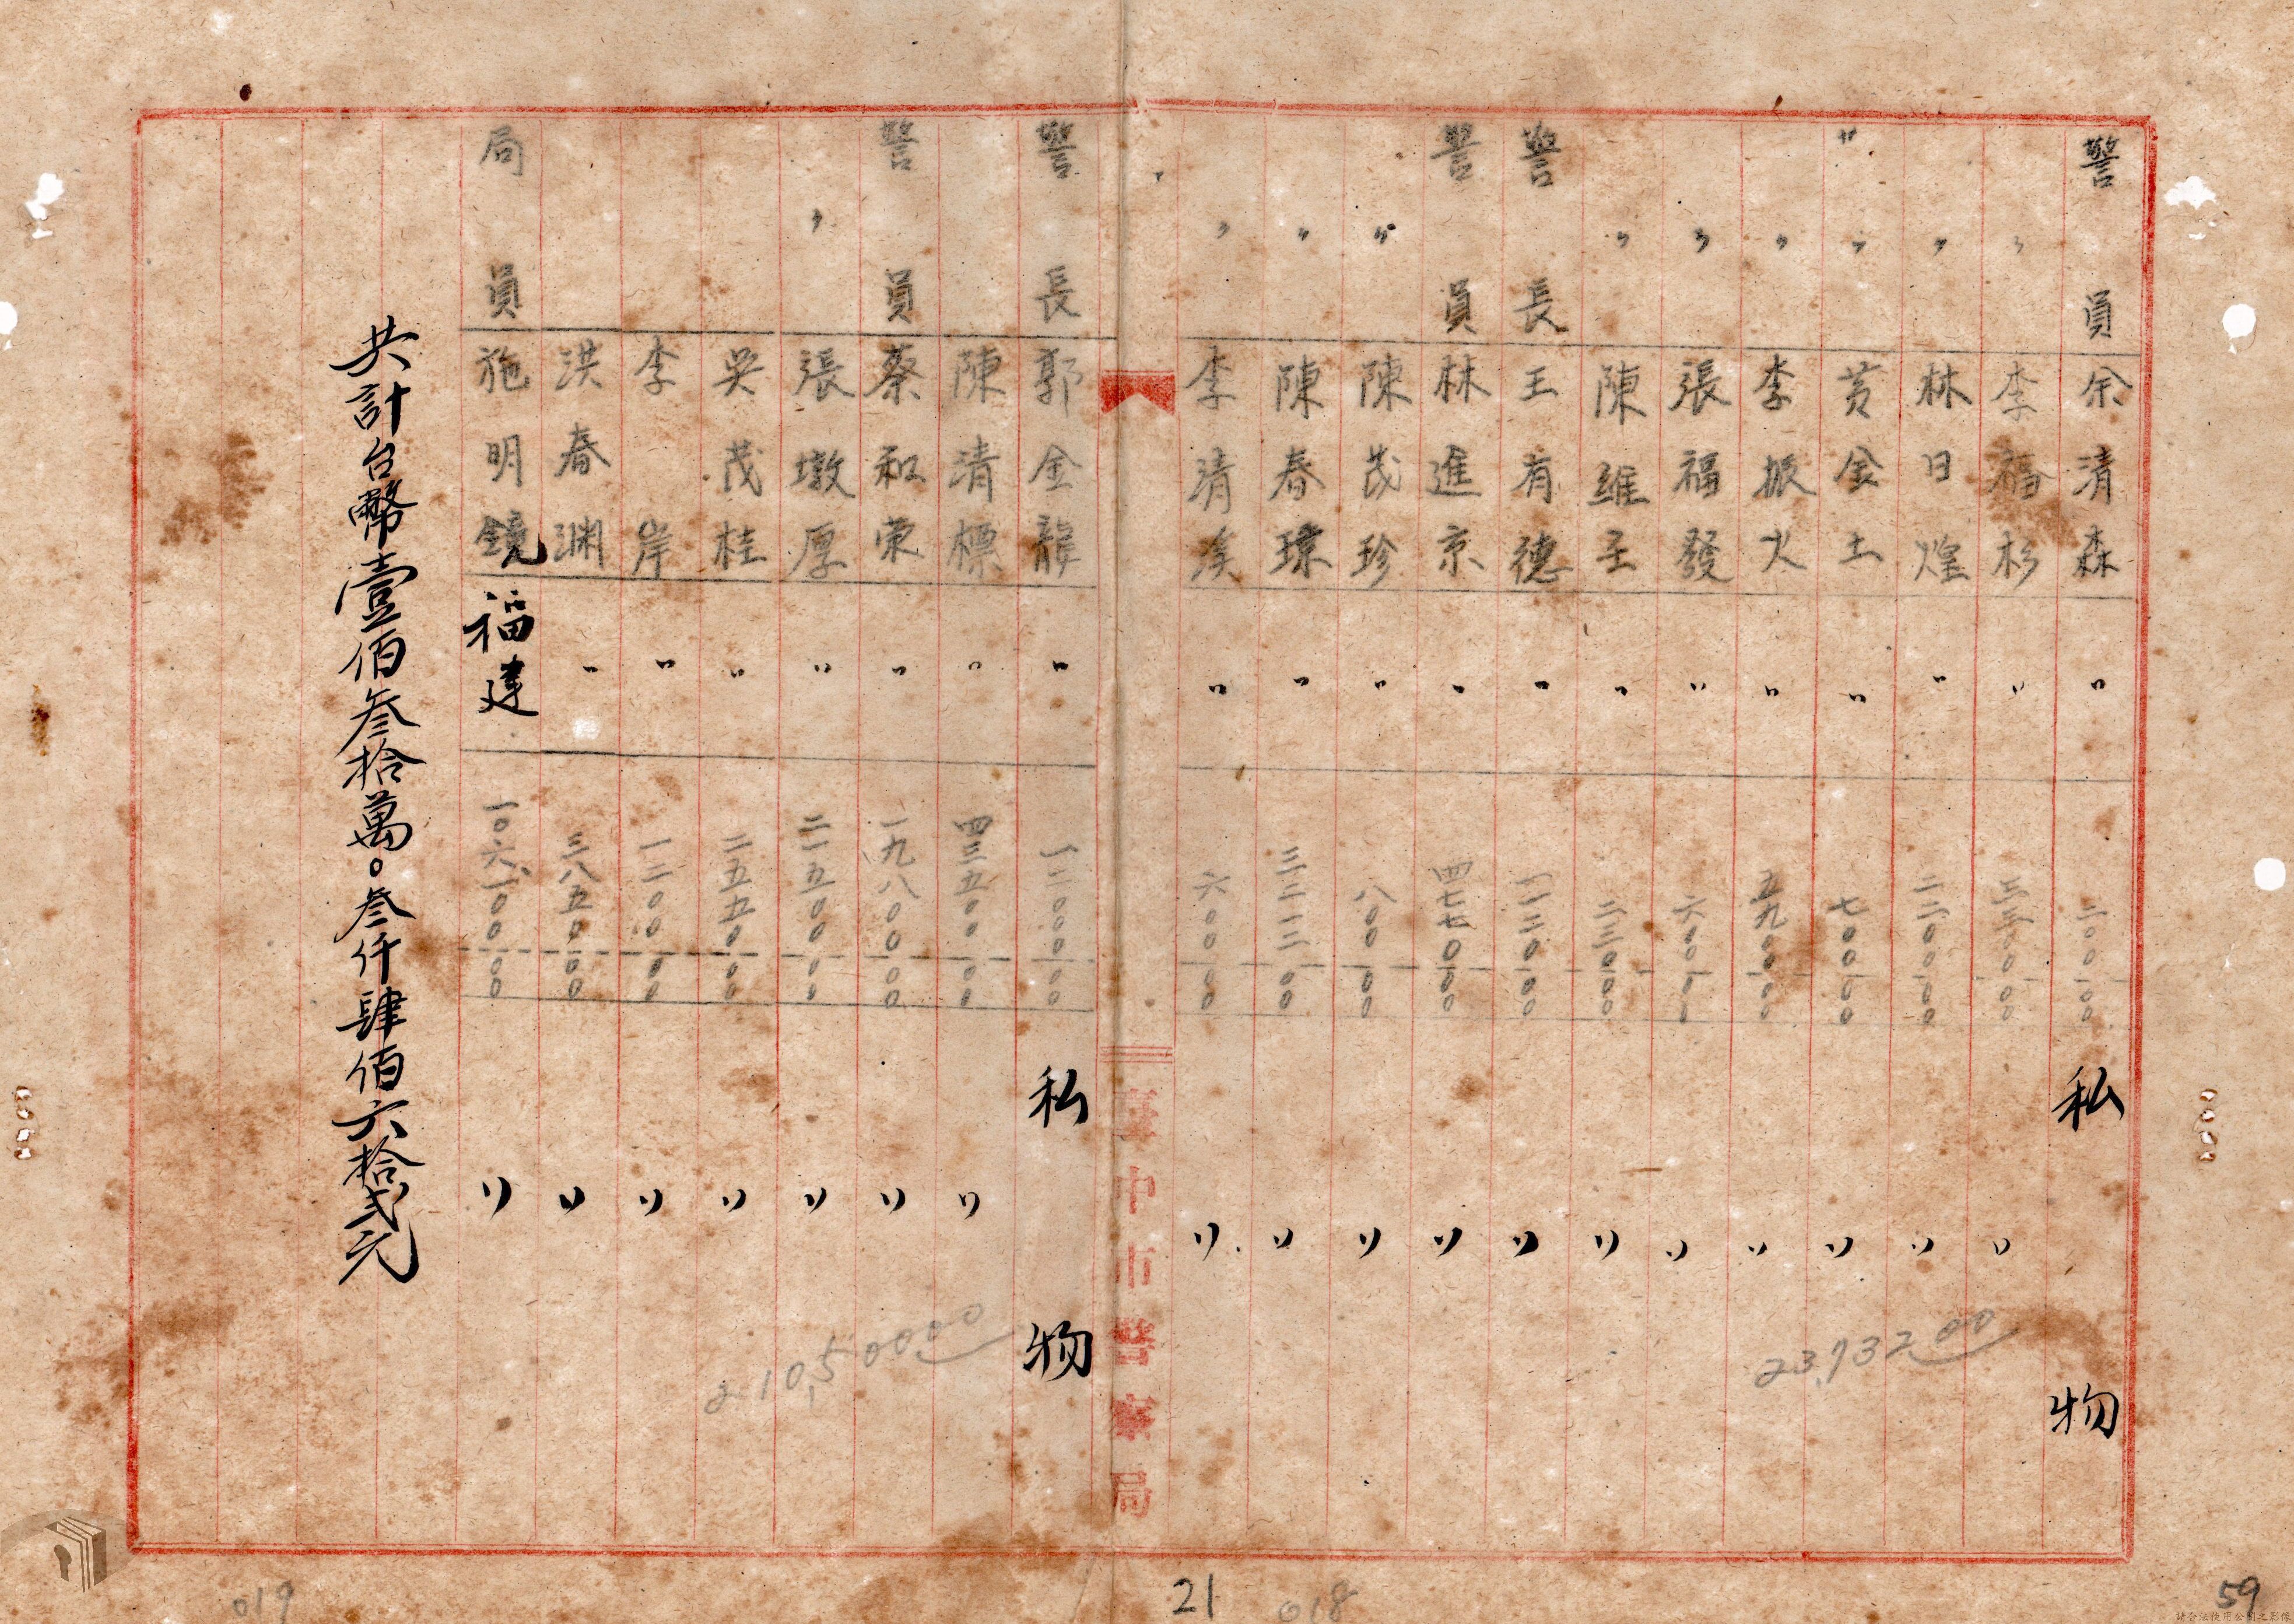 警員 余清森 〃 二〇〇〇〇 私物
〃 李福杉 〃 三三〇〇〇〇 〃
〃 林日煌 〃 二二〇〇〇〇 〃
〃 黃金土 〃 七〇〇〇〇 〃
〃 李振火 〃 五九〇〇〇〇 〃
〃 張福發 〃 六〇〇〇〇 〃
〃 陳維壬 〃 二三〇〇〇 〃
警長 王有德 〃 一二二〇〇〇 〃
警員 林進京 〃 四七七〇〇〇 〃
〃 陳茂珍 〃 八〇〇〇〇 〃
〃 陳春環 〃 三二一二〇〇 〃
〃 李清溪 〃 六〇〇〇〇 〃
23,732.00
臺中市警察局
警長 郭金龍 〃 一二〇〇〇〇〇 私物
陳清標 〃 四三五〇〇〇〇 〃
警員 蔡和榮 〃 一九八〇〇〇〇 〃
〃 張墩厚 〃 二一五〇〇〇〇 〃
吳茂桂 〃 二五五〇〇〇 〃
李岸 〃 一二〇〇〇〇 〃
洪春渊 〃 三八五〇〇〇 〃
局員 施明鏡 福建 一〇六一〇〇〇〇 〃
210,500.00
共計台幣壹佰叁拾萬〇叁仟肆佰六拾弍元
019
21
018
59
請合法使用公開之影像